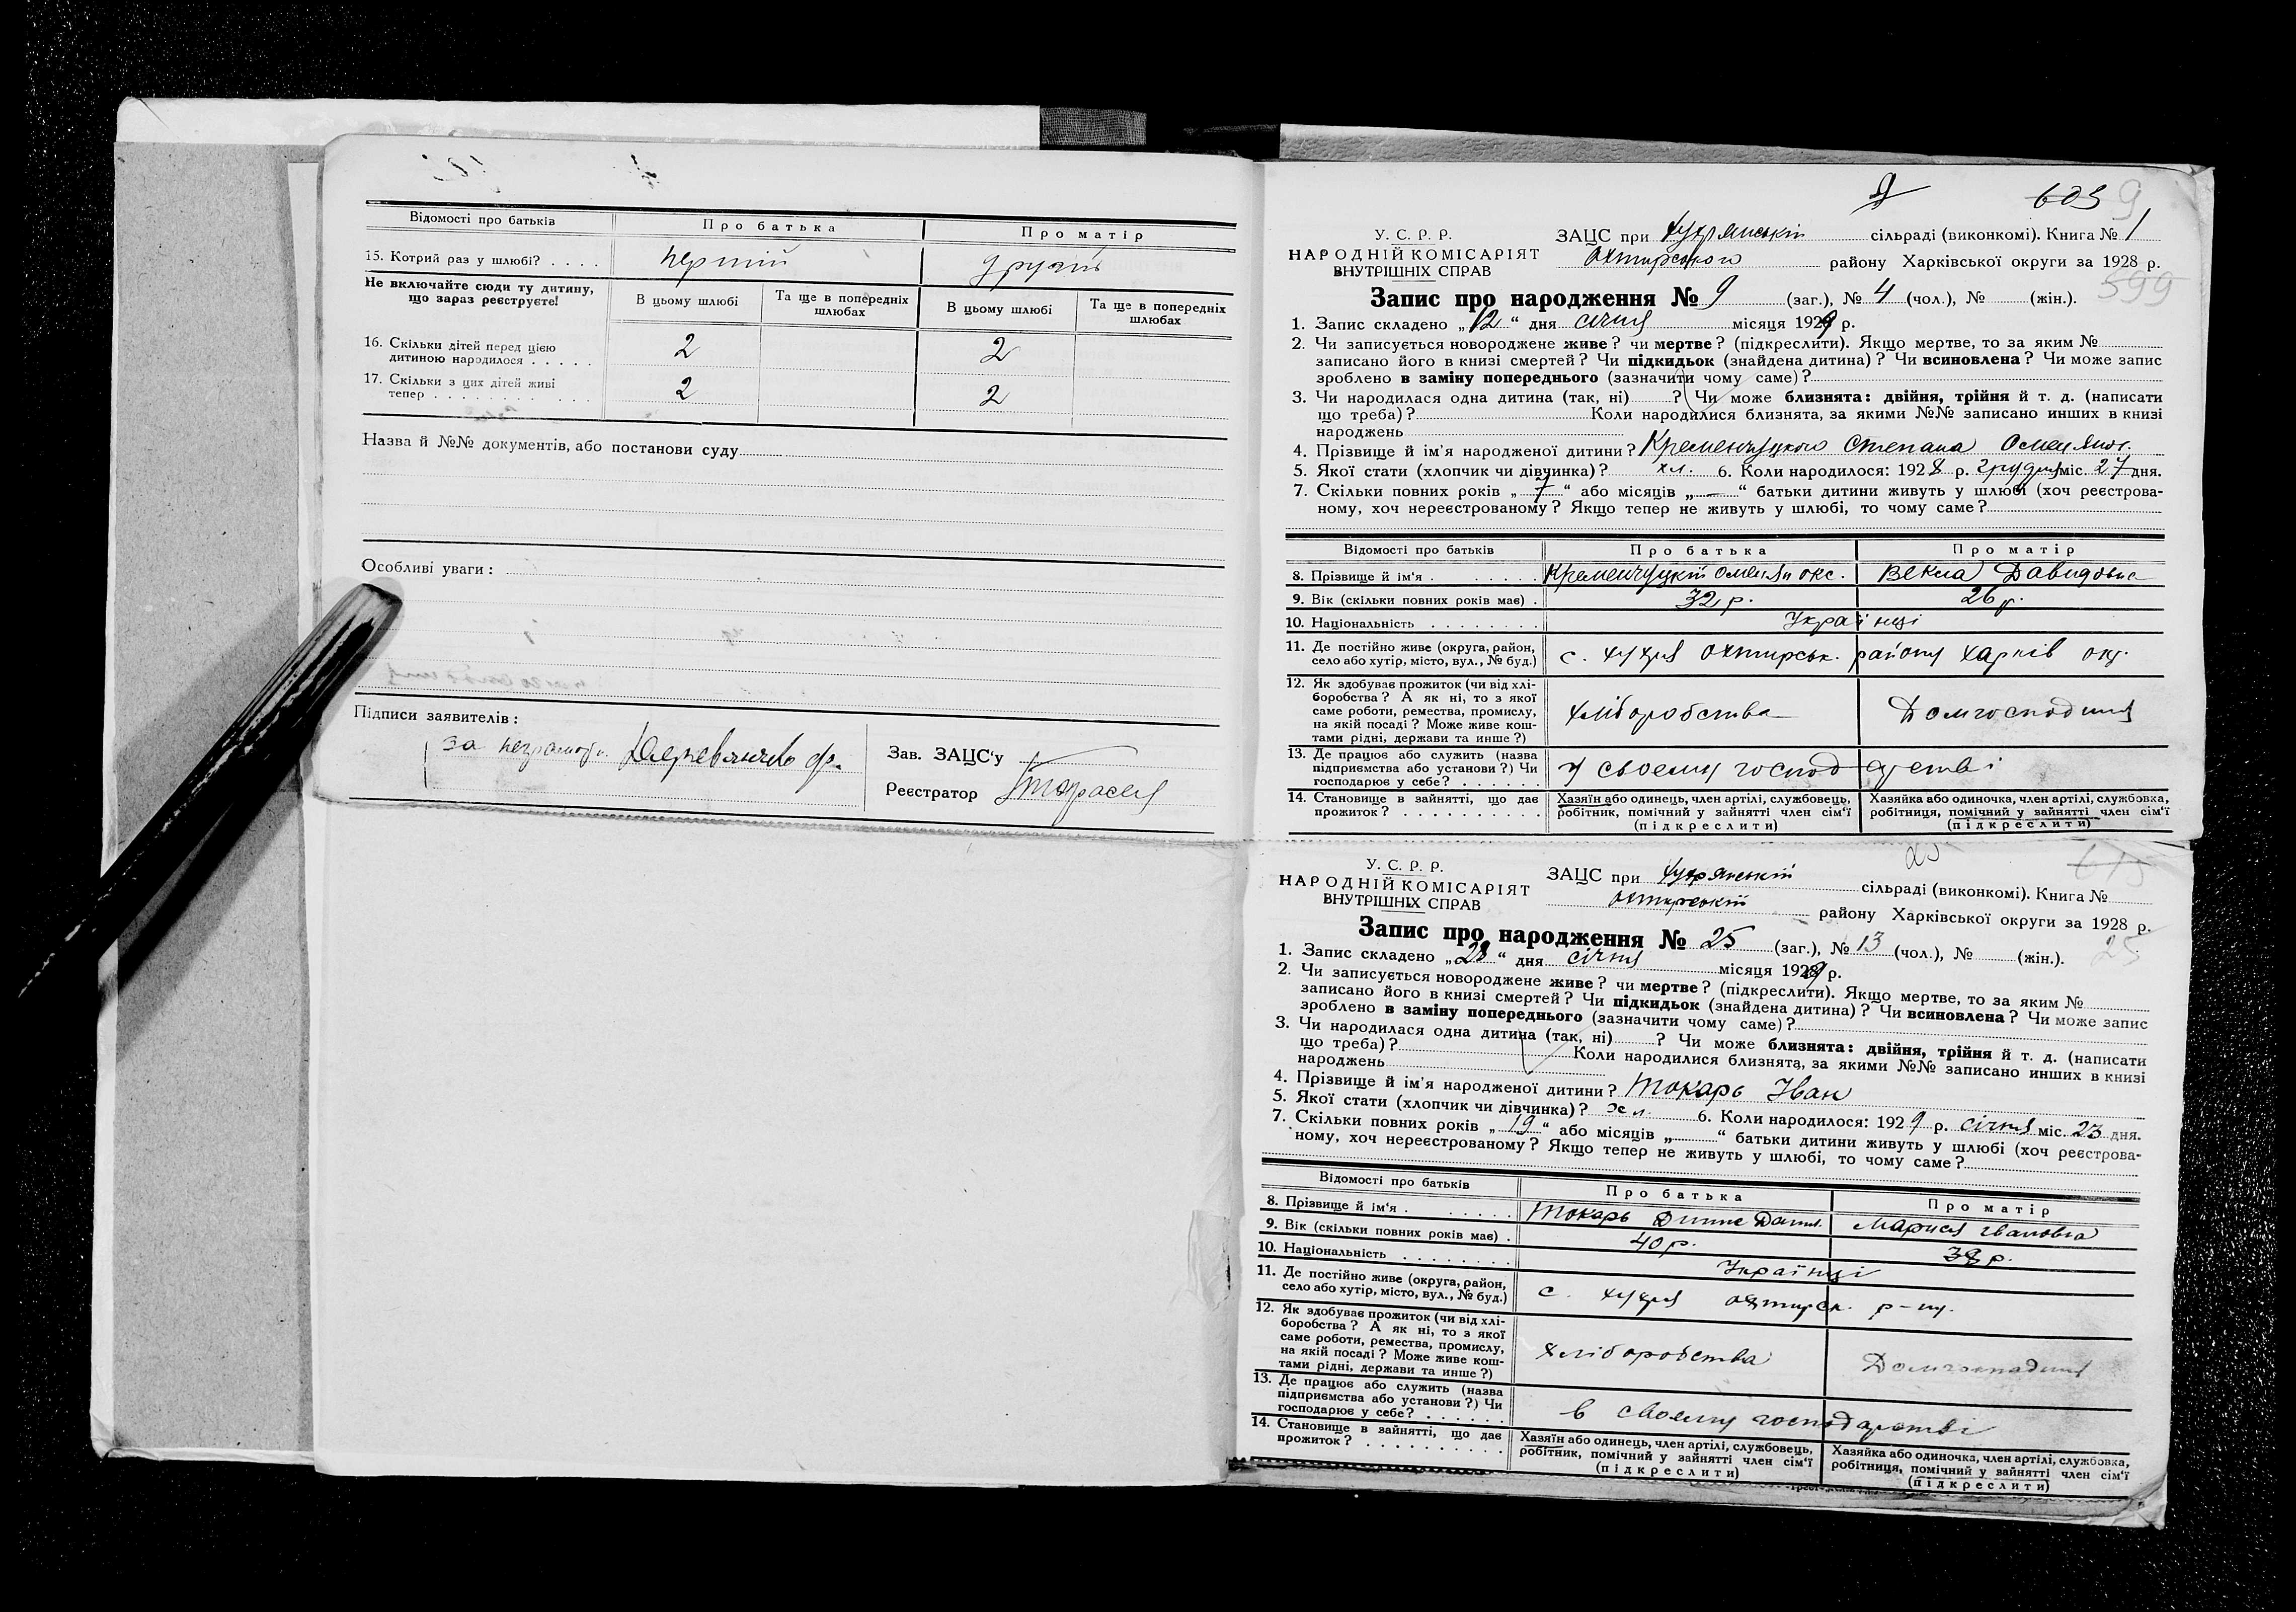 Відомості про батьків Про батька Про матір
15. Котрий раз у шлюбі? . . . . перший другий
Не включайте сюди ту дитину, що зараз реєструєте! В цьому шлюбі Та ще в попередніх шлюбах В цьому шлюбі Та ще в попередніх шлюбах
16. Скільки дітей перед цією
дитиною народилося . . . . . 2 2
17. Скільки з цих дітей живі
тепер . . . . . . . . . . . 2 2
Назва й №№ документів, або постанови суду
Особливі уваги:
Підписи заявителів:
за неграмотн.
Зав. ЗАЦС'у
Реєстратор
9 603 9
У.С.Р.Р.
НАРОДНІЙ КОМІСАРІЯТ
ВНУТРІШНІХ СПРАВ
ЗАЦС при Хухрянській сільраді (виконкомі). Книга № 1
Охтирського району Харківської округи за 1928 р.
599
Запис про народження № 9 (заг.), № 4 (чол.), № (жін.).
1. Запис складено „12“ дня січня місяця 1929 р.
2. Чи записується новороджене живе? чи мертве? (підкреслити). Якщо мертве, то за яким №
записано його в книзі смертей? Чи підкидьок (знайдена дитина)? Чи всиновлена? Чи може запис
зроблено в заміну попереднього (зазначити чому саме)?
3. Чи народилася одна дитина (так, ні) ? Чи може близнята: двійня, трійня й т. д. (написати
що треба)? Коли народилися близнята, за якими №№ записано инших в книзі
народжень
4. Прізвище й ім'я народженої дитини? Кременчуцкого Степана Омелянов.
5. Якої стати (хлопчик чи дівчинка)? хл. 6. Коли народилося: 1928 р. грудня міс. 27 дня.
7. Скільки повних років „7“ або місяців „—“ батьки дитини живуть у шлюбі (хоч реєстрова-
ному, хоч нереєстрованому? Якщо тепер не живуть у шлюбі, то чому саме?
Відомості про батьків Про батька Про матір
8. Прізвище й ім'я . . . . . . Кременчуцкій Омелян окс. Векла Давидовна
9. Вік (скільки повних років має) . 32 р. 26 р.
10. Національність . . . . . . . . Українці
11. Де постійно живе (округа, район,
село або хутір, місто, вул., № буд.) с. Хухря Охтирськ. району Харків окр.
12. Як здобуває прожиток (чи від хлі-
боробства? А як ні, то з якої
саме роботи, ремества, промислу,
на якій посаді? Може живе кош-
тами рідні, держави та инше?) Хліборобства Домгосподиня
13. Де працює або служить (назва
підприємства або установи?) Чи
господарює у себе? . . . . . . у своему господарстві
14. Становище в зайнятті, що дає
прожиток? . . . . . . . . . .
Хазяїн або одинець, член артілі, службовець,
робітник, помічний у зайнятті член сім'ї
(підкреслити)
Хазяйка або одиночка, член артілі, службовка,
робітниця, помічний у зайнятті член сім'ї
(підкреслити)
25 615
У.С.Р.Р.
НАРОДНІЙ КОМІСАРІЯТ
ВНУТРІШНІХ СПРАВ
ЗАЦС при Хухрянській сільраді (виконкомі). Книга №
Охтирській району Харківської округи за 1928 р.
Запис про народження № 25 (заг.), № 13 (чол.), № (жін.). 25
1. Запис складено „28“ дня січня місяця 1929 р.
2. Чи записується новороджене живе? чи мертве? (підкреслити). Якщо мертве, то за яким №
записано його в книзі смертей? Чи підкидьок (знайдена дитина)? Чи всиновлена? Чи може запис
зроблено в заміну попереднього (зазначити чому саме)?
3. Чи народилася одна дитина (так, ні) ? Чи може близнята: двійня, трійня й т. д. (написати
що треба)? Коли народилися близнята, за якими №№ записано инших в книзі
народжень
4. Прізвище й ім'я народженої дитини? Токарь Іван
5. Якої стати (хлопчик чи дівчинка)? хл. 6. Коли народилося: 1929 р. січня міс. 23 дня.
7. Скільки повних років „19“ або місяців „ “ батьки дитини живуть у шлюбі (хоч реєстрова-
ному, хоч нереєстрованому? Якщо тепер не живуть у шлюбі, то чому саме?
Відомості про батьків Про батька Про матір
8. Прізвище й ім'я . . . . . . Токарь Марися Івановна
9. Вік (скільки повних років має) . 40 р. 38 р.
10. Національність . . . . . . . Українці
11. Де постійно живе (округа, район,
село або хутір, місто, вул., № буд.) с. Хухря Охтирск. р-ну.
12. Як здобуває прожиток (чи від хлі-
боробства? А як ні, то з якої
саме роботи, ремества, промислу,
на якій посаді? Може живе кош-
тами рідні, держави та инше?) Хліборобства Домгосподиня
13. Де працює або служить (назва
підприємства або установи?) Чи
господарює у себе? . . . . . . в своему господарстві
14. Становище в зайнятті, що дає
прожиток? . . . . . . . . . .
Хазяїн або одинець, член артілі, службовець,
робітник, помічний у зайнятті член сім'ї
(підкреслити)
Хазяйка або одиночка, член артілі, службовка,
робітниця, помічний у зайнятті член сім'ї
(підкреслити)